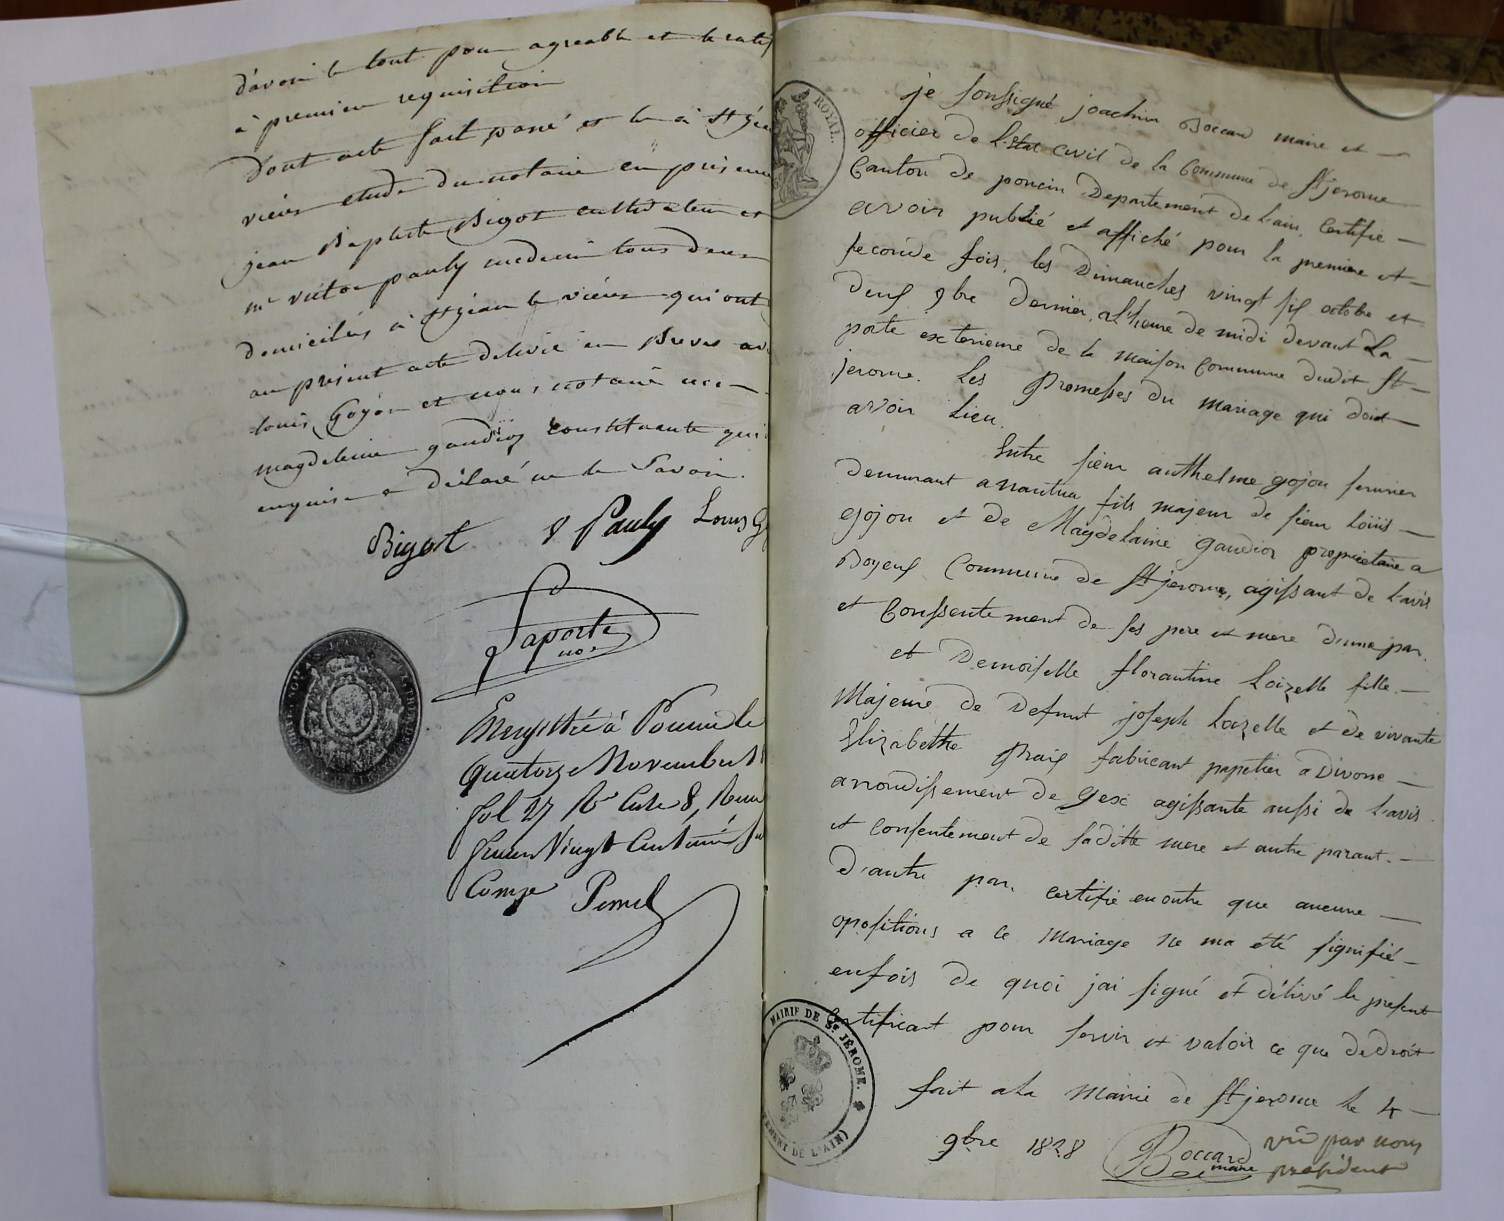 d'avoir le tout pour agreable et le ratif
à premiere requisition
Dont acte fait passé et lu à St jean
vieux etude du notaire en présence
jean Baptiste Bigot cultivateur et
mr victor pauly medecin tous deux
domiciliés à St jean le vieux qui ont
au présent acte delivré en Brevet av
louis Gojon et nous notaire
magdeleine gaudioz constituante qui
enquise a déclaré ne le Savoir.
Bigot V Pauly Louis G
Laporte
nore
Enregistré à Poncin le
quatorze Novembre 18
fol 27 Ro Case 8, Reçu
franc Vingt Centimes
Compe Pernel
ROYAL.
je soussigné joachim Boccard maire et
officier de L'Etat civil de la Commune de St jerome
Canton de poncin Departement de L'ain, Certifie
avoir publié et affiché pour la premiere et
seconde fois, les Dimanches vingt six octobre et
deux 9bre Dernier, a L'heure de midi devant La
porte exterieure de la maison Commune dudit St
jerome. Les Promesses du mariage qui doit
avoir Lieu.
Entre sieur anthelme gojon
demeurant a nantua fils majeur de sieur Loüis
gojon et de Magdelaine gaudioz proprietaire a
Boyeux Commune de St jerome, agissant de L'avis
et Conssentement de ses pere et mere d'une par.
et Demoiselle florantine Loizelle fille
Majeure de Defunt joseph Loizelle et de vivante
Elizabethe fabricant papetier a Divonne
arrondissement de Gex agissante aussi de L'avis
et consentement de saditte mere et autre parant.
D'autre par. certifie en outre que aucune
opositions a ce Mariage ne ma été signifié
enfois de quoi jai signé et délivré le present
Certificart pour servir et valoir ce que de droit
fait a La Mairie de St jerome le 4
9bre 1828 Boccard vu par nous
maire president
MAIRIE DE St JÉRÔME.
TEMENT DE L'AIN)